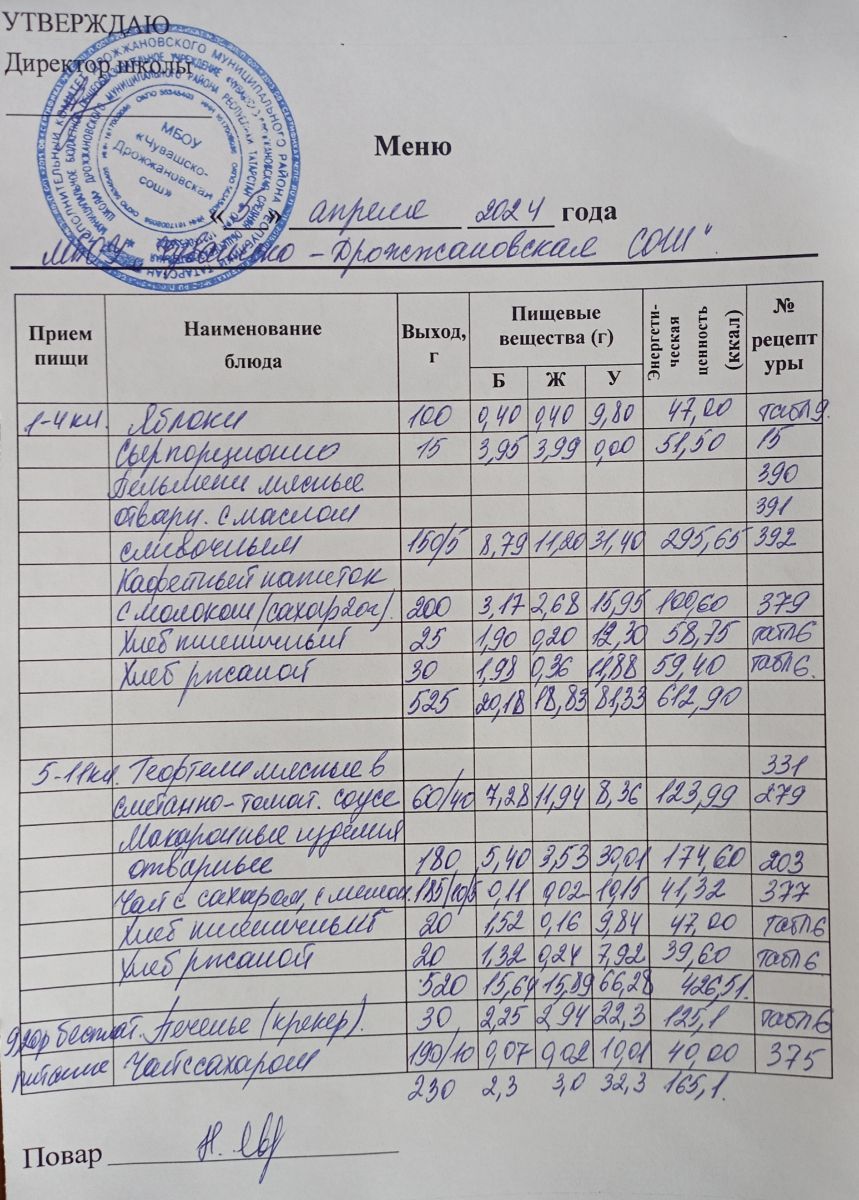 УТВЕРЖДАЮ
Директор школы
МБОУ
«Чувашско-
Дрожжановская
сош»
Меню
« 5 » апреля 2024 года
Дрожжановская СОШ".
Прием пищи Наименование блюда Выход, г Пищевые вещества (г) Энергети-ческая ценность (ккал) № рецептуры
Б Ж У
1-4 кл. Яблоки 100 0,40 0,40 9,80 47,00 табл 9.
Сыр порционно 15 3,95 3,99 0,00 51,50 15
Пельмени мясные 390
отварн. с маслом 391
сливочным 150/5 8,79 11,20 31,40 295,65 392
Кофейный напиток
с молоком (сахар 20г). 200 3,17 2,68 15,95 100,60 379
Хлеб пшеничный 25 1,90 0,20 12,30 58,75 табл 6
Хлеб ржаной 30 1,98 0,36 11,88 59,40 табл 6.
525 20,18 18,83 81,33 612,90
5-11 кл. Тефтели мясные в 331
сметанно-томат. соусе 60/40 7,28 11,94 8,36 123,99 279
Макаронные изделия
отварные 180 5,40 3,53 30,01 174,60 203
Чай с сахаром, с лимон. 185/10/5 0,11 0,02 10,15 41,32 377
Хлеб пшеничный 20 1,52 0,16 9,84 47,00 табл 6
Хлеб ржаной 20 1,32 0,24 7,92 39,60 табл 6
520 15,64 15,89 66,28 426,51.
бесплат. Печенье (крекер). 30 2,25 2,94 22,3 125,1 табл 6
питание Чай с сахаром 190/10 0,07 0,02 10,01 40,00 375
230 2,3 3,0 32,3 165,1.
Повар